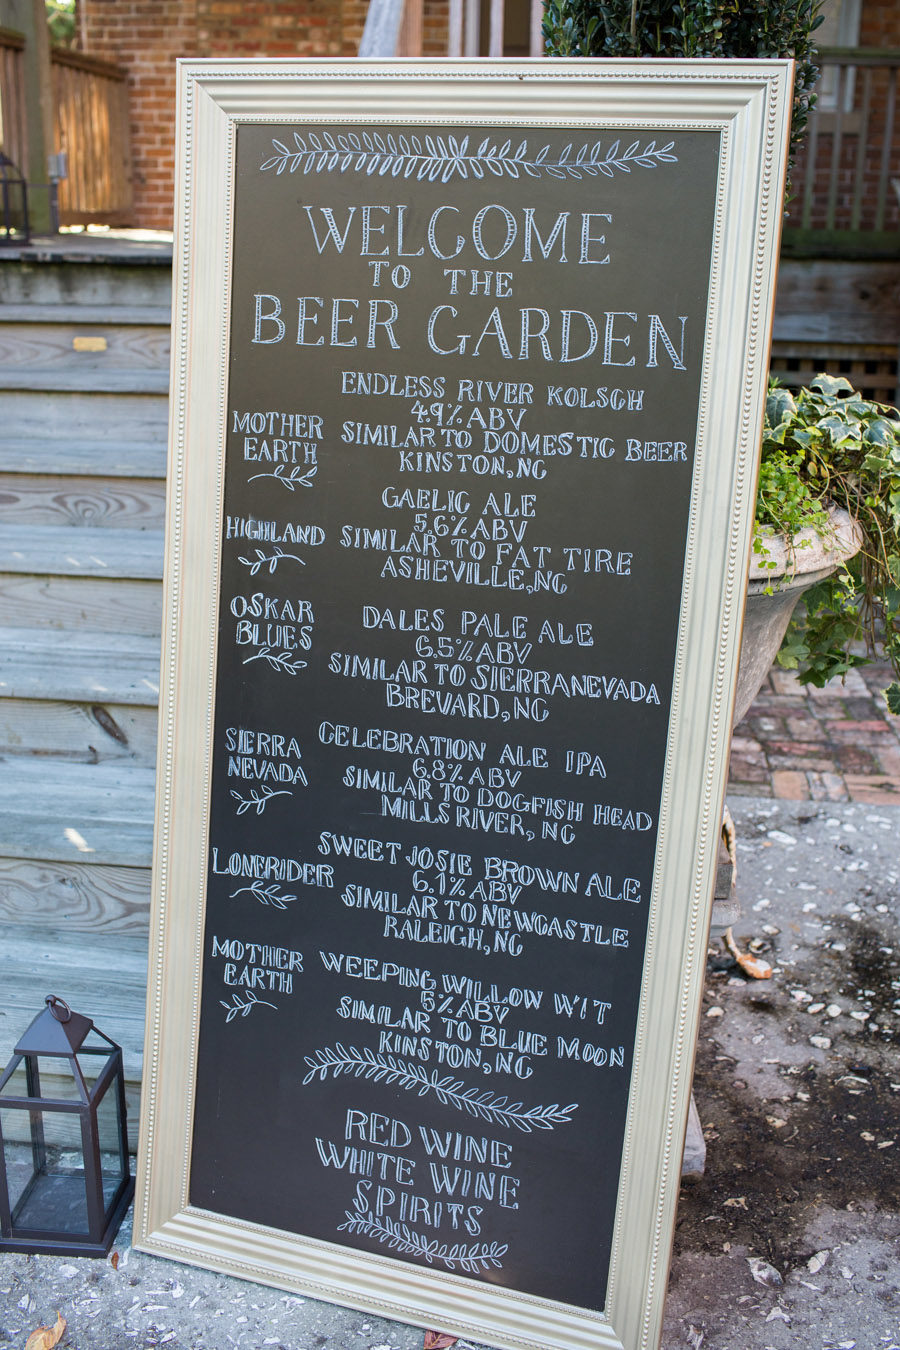 WELCOME
TO THE
BEER GARDEN
MOTHER
EARTH
ENDLESS RIVER KOLSCH
4.9% ABV
SIMILAR TO DOMESTIC BEER
KINSTON, NC
HIGHLAND
GAELIC ALE
5.6% ABV
SIMILAR TO FAT TIRE
ASHEVILLE, NC
OSKAR
BLUES
DALES PALE ALE
6.5% ABV
SIMILAR TO SIERRA NEVADA
BREVARD, NC
SIERRA
NEVADA
CELEBRATION ALE IPA
6.8% ABV
SIMILAR TO DOGFISH HEAD
MILLS RIVER, NC
LONERIDER
SWEET JOSIE BROWN ALE
6.1% ABV
SIMILAR TO NEWCASTLE
RALEIGH, NC
MOTHER
EARTH
WEEPING WILLOW WIT
5% ABV
SIMILAR TO BLUE MOON
KINSTON, NC
RED WINE
WHITE WINE
SPIRITS